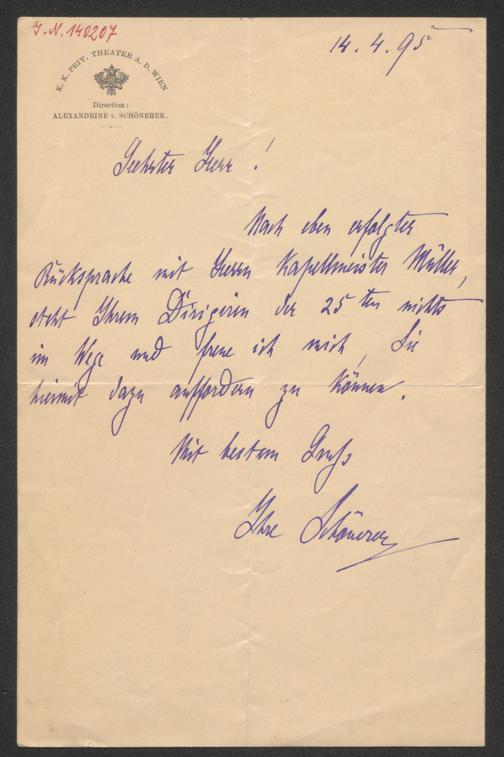 I.N. 140207
14.4.95
K. K. PRIV. THEATER A. D. WIEN
Direction:
ALEXANDRINE v. SCHÖNERER.
Geehrter Herr!
Nach eben erfolgter
Rücksprache mit Herrn Kapellmeister Müller,
steht Ihrem Dirigiren der 25ten nichts
im Wege und freue ich mich, Sie
hiermit dazu auffordern zu können.
Mit bestem Gruß
Ihre Schönerer